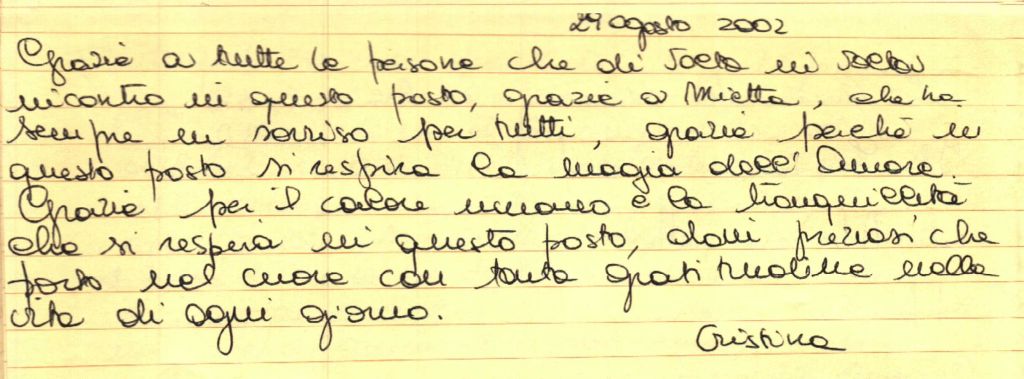 29 agosto 2002
Grazie a tutte le persone che di volta in volta
incontro in questo posto, grazie a Mietta, che ha
sempre un sorriso per tutti, grazie perchè in
questo posto si respira la magia dell'Amore.
Grazie per il calore umano e la tranquillità
che si respira in questo posto, doni preziosi che
porto nel cuore con tanta gratitudine nella
vita di ogni giorno.
Cristina